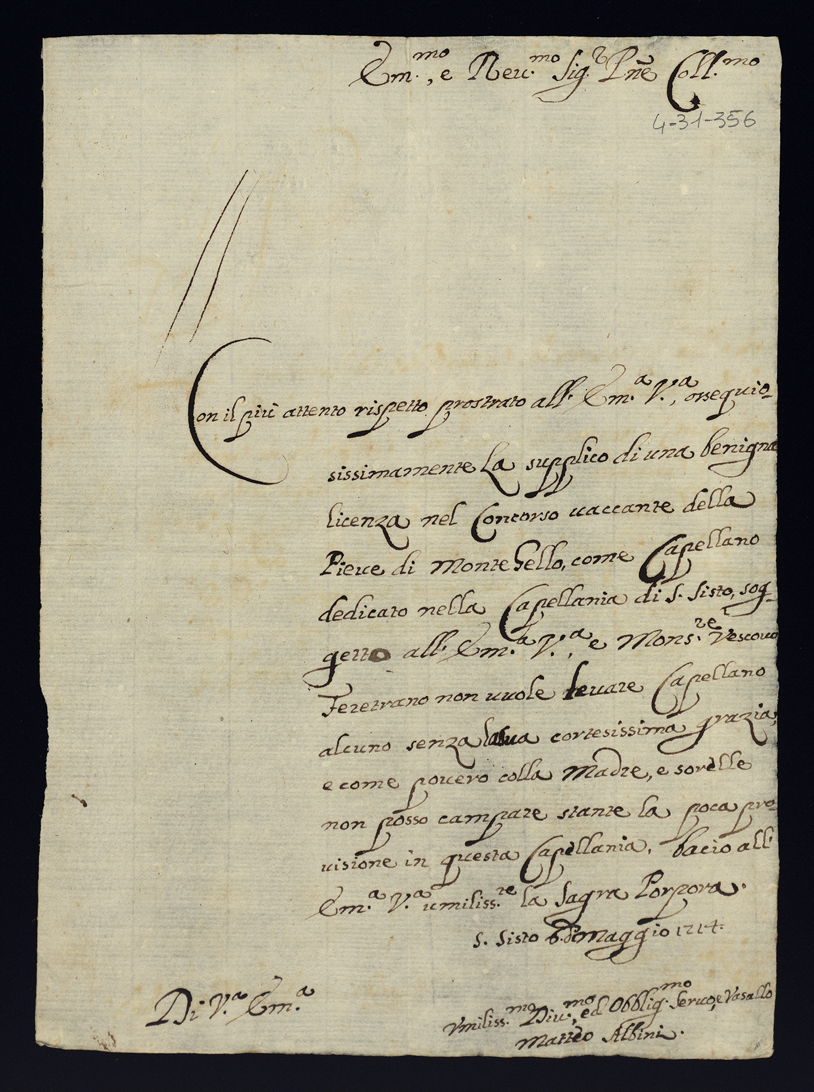 Em.mo, e Reu.mo Sig.r Pñe Coll.mo
4-31-356
Con il più attento rispetto prostrato all' Em.a V.a, ossequio-
sissimamente La supplico di una benigna
licenza nel Concorso uaccante della
Pieue di Monte bello, come Capellano
dedicato nella Capellania di S. Sisto, sog-
getto all' Em.a V.a, e Mons.re Vescouo
Feretrano non uuole leuare Capellano
alcuno senza la sua cortesissima grazia,
e come pouero colla Madre, e sorelle
non posso campare stante la poca pro-
uisione in questa Capellania, bacio all'
Em.a V.a umiliss.te la Sagra Porpora.
S. Sisto 6. di Maggio 1714.
Di V.a Em.a
Vmiliss.mo Diu.mo, ed Obblig.mo Seruo, e Vasallo
Matteo Albini.